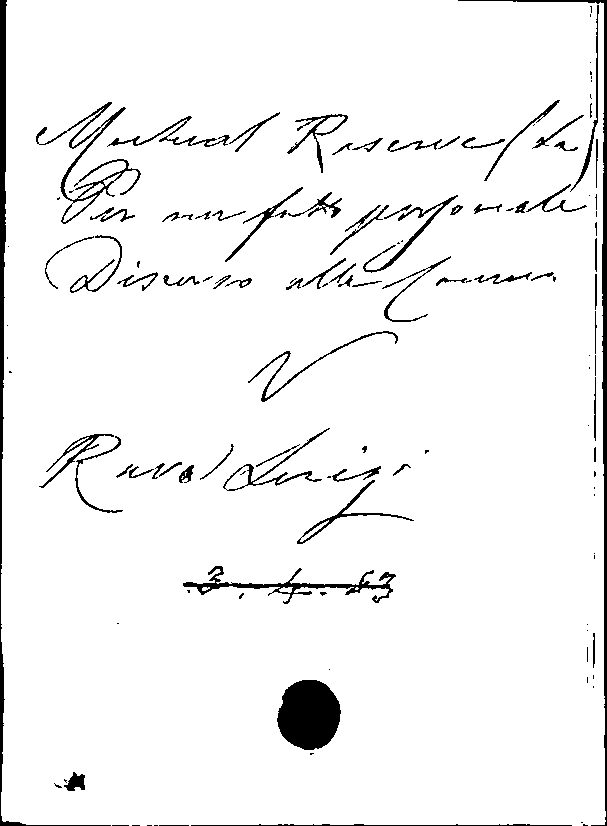 Mutual Reserve (La)
Per un fatto personale
Discorso alla Camera
V
Rava Luigi
3. 4. 53